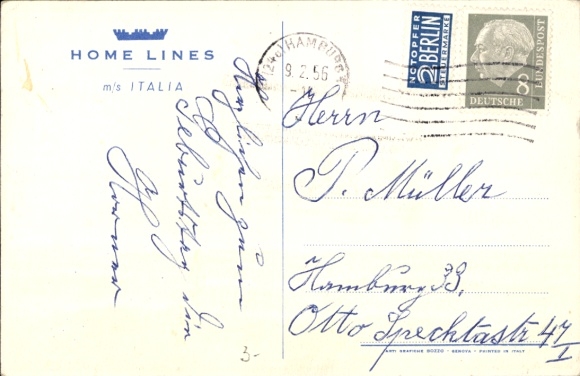 HOME LINES
m/s ITALIA
Herzlichen
zum
Geburtstag
(24a) HAMBURG
9.2.56
NOTOPFER
2 BERLIN
STEUERMARKE
DEUTSCHE
BUNDESPOST
8
Herrn
P. Müller
Hamburg 33,
Otto Specktastr 47
I
3-
ARTI GRAFICHE BOZZO - GENOVA - PRINTED IN ITALY